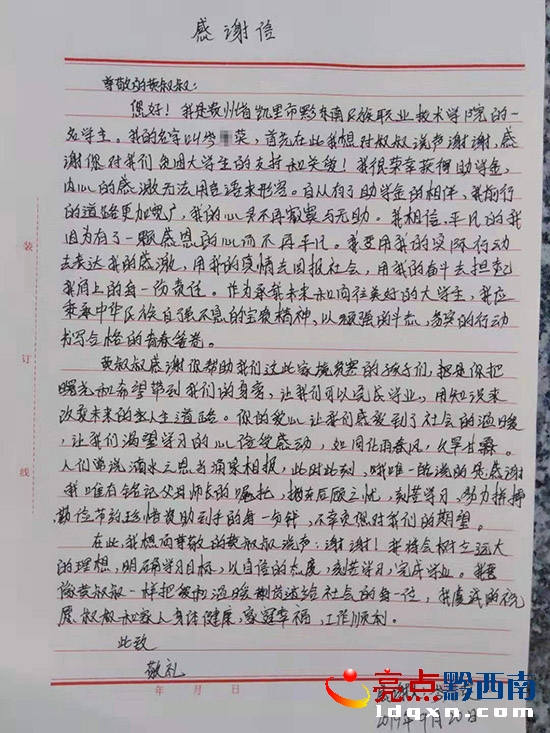 感谢信
尊敬的黄叔叔：
您好！我是贵州省凯里市黔东南民族职业技术学院的一
名学生。我的名字叫岑 英，首先在此我想对叔叔说声谢谢，感
谢您对我们贫困大学生的支持和关爱！我很荣幸获得助学金，
内心的感激无法用言语来形容。自从有了助学金的相伴，我前行
的道路更加宽广，我的心灵不再寂寞与无助。我相信，平凡的我
因为有了一颗感恩的心而不再平凡。我要用我的实际行动
去表达我的感激，用我的真情去回报社会，用我的奋斗去担起
我肩上的每一份责任。作为承载未来和向往美好的大学生，我应
秉承中华民族自强不息的宝贵精神，以顽强的斗志，务实的行动
书写合格的青春答卷。
黄叔叔感谢你帮助我们这些家境贫寒的孩子们，把是你把
曙光和希望带到我们的身旁，让我们可以完成学业，用知识来
改变未来的人生道路。你的爱心让我们感受到了社会的温暖
，让我们渴望学习的心倍受感动，如同化雨春风，久旱甘霖。
人们常说滴水之恩当涌泉相报，此时此刻，我唯一能说的是感谢
我唯有铭记父母师长的嘱托，抛去后顾之忧，刻苦学习，努力拼搏
勤俭节约珍惜资助到手的每一分钱，不辜负您对我们的期望。
在此，我想向尊敬的黄叔叔说声：谢谢！我将会树立远大
的理想，明确学习目标，以自信的态度，刻苦学习，完成学业。我要
像黄叔叔一样把 温暖 递给社会的每一位，我虔诚的祝
愿叔叔和家人身体健康，家庭幸福，工作顺利。
此致
敬礼
年 月 日
2019年9月20日
装
订
线
亮点黔西南
ldqxn.com